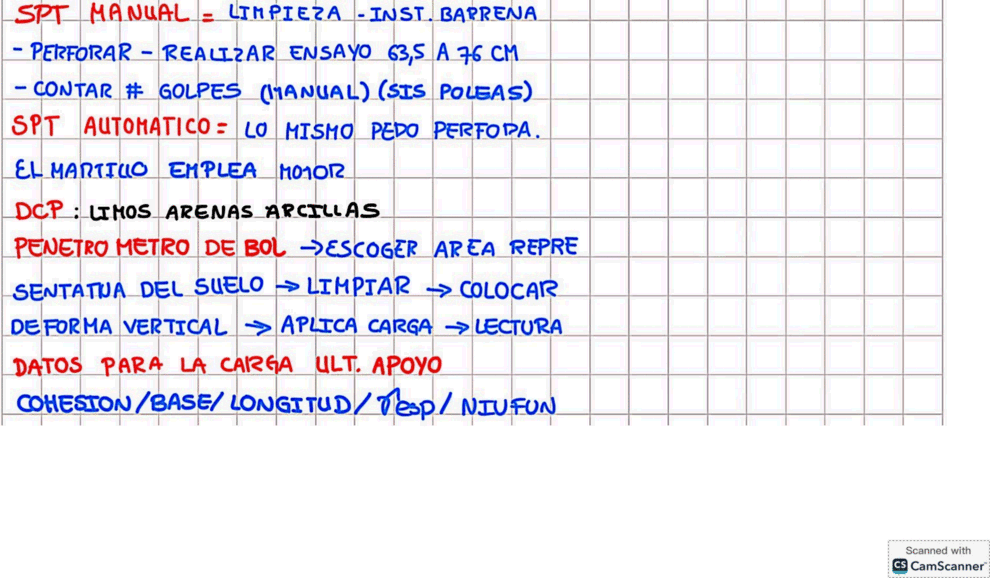 SPT MANUAL = LIMPIEZA - INST. BARRENA
- PERFORAR - REALIZAR ENSAYO 63,5 A 76 CM
- CONTAR # GOLPES (MANUAL) (SIS POLEAS)
SPT AUTOMATICO = LO MISMO PERO PERFORA.
EL MARTILLO EMPLEA MOTOR
DCP : LIMOS ARENAS ARCILLAS
PENETROMETRO DE BOL → ESCOGER AREA REPRE
SENTATIVA DEL SUELO → LIMPIAR → COLOCAR
DE FORMA VERTICAL → APLICA CARGA → LECTURA
DATOS PARA LA CARGA ULT. APOYO
COHESION/BASE/LONGITUD/γesp/NIVFUN
Scanned with
CS CamScanner